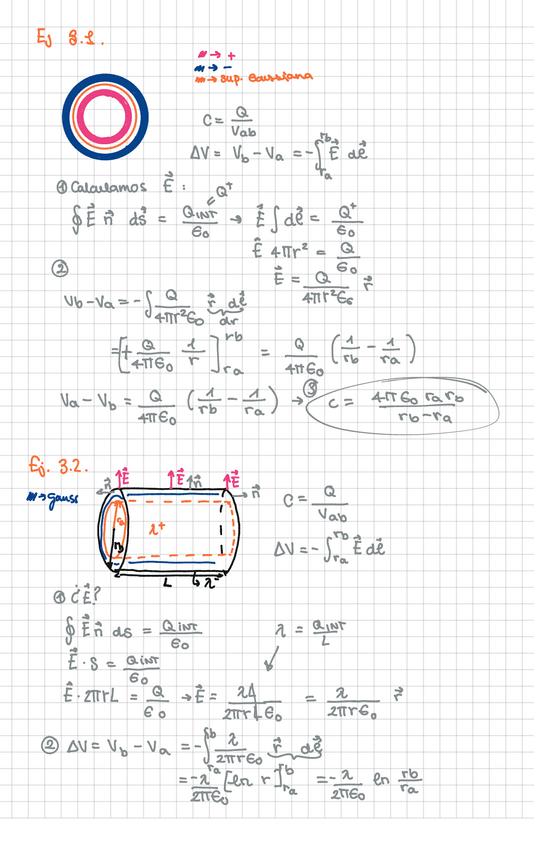 Ej 3.1.
→ +
→ -
→ sup. Gaussiana
C = Q/Vab
ΔV = Vb - Va = -∫ra^rb E⃗ dℓ⃗
① Calculamos E⃗ :
∮ E⃗ n⃗ ds⃗ = QINT/ε0 → E⃗ ∫ dℓ⃗ = Q⁺/ε0
Q⁺
E⃗ 4πr² = Q/ε0
E⃗ = Q/4πr²ε0 r⃗
②
Vb - Va = -∫ Q/4πr²ε0 r⃗ dℓ⃗
dr
= [+ Q/4πε0 1/r ]ra^rb = Q/4πε0 (1/rb - 1/ra)
Va - Vb = Q/4πε0 (1/rb - 1/ra) → ③ C = 4πε0 ra rb/rb - ra
Ej. 3.2.
→ Gauss
n⃗ E⃗ E⃗ n⃗ E⃗ n⃗
λ+
ra
rb
L λ-
C = Q/Vab
ΔV = -∫ra^rb E⃗ dℓ⃗
① ¿E⃗?
∮ E⃗ n⃗ ds = QINT/ε0
λ = QINT/L
E⃗ · S = QINT/ε0
E⃗ · 2πrL = Q/ε0 → E⃗ = λL/2πrLε0 = λ/2πrε0 r⃗
② ΔV = Vb - Va = -∫ra^rb λ/2πrε0 r⃗ dℓ⃗
= -λ/2πε0 [ln r]ra^rb = -λ/2πε0 ln rb/ra